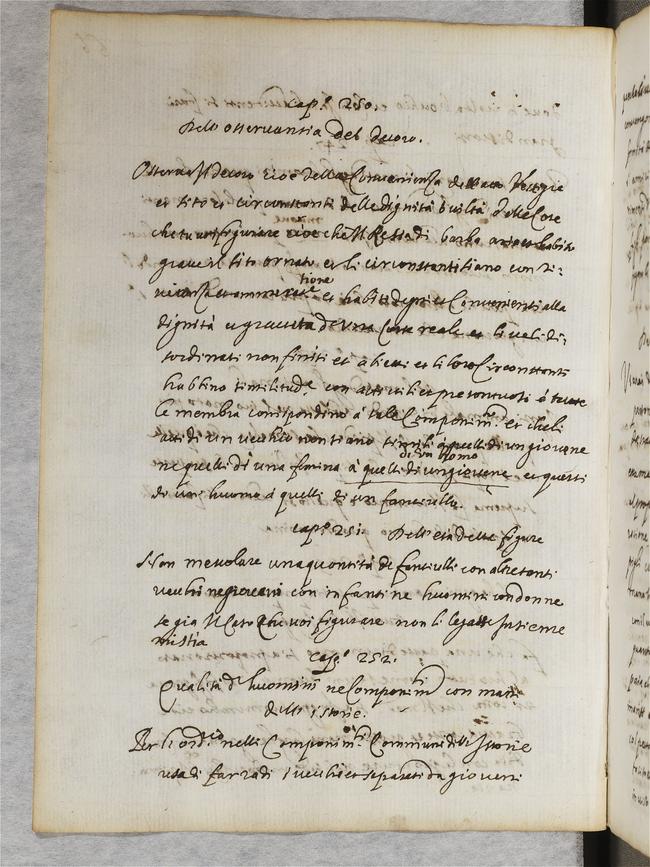 Cap.º 250.
Dell'osservantia del decoro.
Osserva Il decoro cioè della Convenienza dell'atto Vestigie
et sito et circonstanti delle dignità ò viltà delle Cose
che tu voi figurare cioè che Il Re sia di barba aria et habito
grave et il sito ornato et li circonstanti stiano con ri-
verenza et ammiratione et habiti degni et Convenienti alla
dignità et gravità d'una Corte reale et li vili di-
sordinati non finiti et abietti et li loro Circonstanti
habbino similitud.e con atti vili et presontuosi è tutte
le membra corrispondino à tale Componim.to et che li
atti di un vecchio non siano simili à quelli di un giovane
ne quelli di una femina à quelli di un giovane di un Homo et questi
di un huomo à quelli di un fanciullo.
Cap.º 251. Dell'età delle figure
Non mescolare una quantità di fanciulli con altretanti
vecchi ne giovani con infanti ne huomini con donne
se già Il caso che voi figurare non li legasse Insieme
mistia
Cap.º 252.
Qualità d'huomini ne Componim.ti
delle istorie.
Per l'ord.rio nelli Componim.ti Communi dell'Istorie
usa di far radi i vecchi et separati da giovani